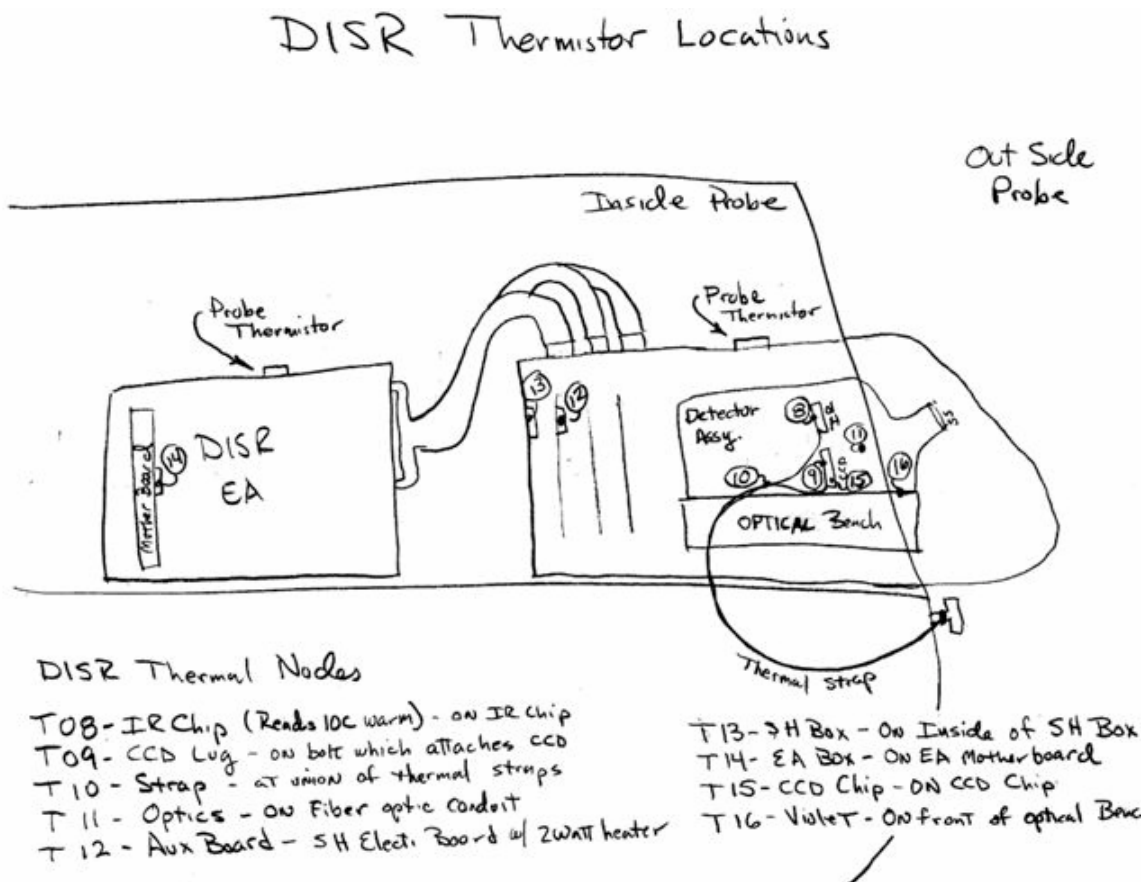 DISR Thermistor Locations
Out Side
Probe
Inside Probe
Probe
Thermistor
Probe
Thermistor
13
12
Detector
Assy.
8
IR
11
SS
14
DISR
EA
Mother Board
10
9
CCD
15
16
OPTICAL Bench
Thermal Strap
DISR Thermal Nodes
T08 - IR Chip (Reads 10C warm) - ON IR Chip
T09 - CCD Lug - on bolt which attaches CCD
T10 - Strap - at union of thermal straps
T11 - Optics - ON Fiber optic conduit
T12 - Aux Board - SH Elect. Board w/ 2watt heater
T13 - SH Box - On Inside of SH Box
T14 - EA Box - ON EA Motherboard
T15 - CCD Chip - ON CCD Chip
T16 - Violet - ON front of optical Benc